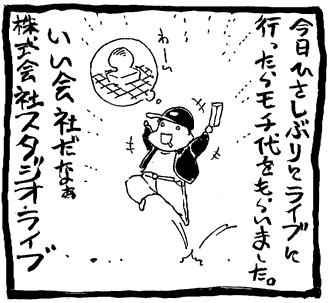 今日ひさしぶりにライブに
行ったらモチ代をもらいました。
わーい
いい会社だなぁ
株式会社スタジオライブ